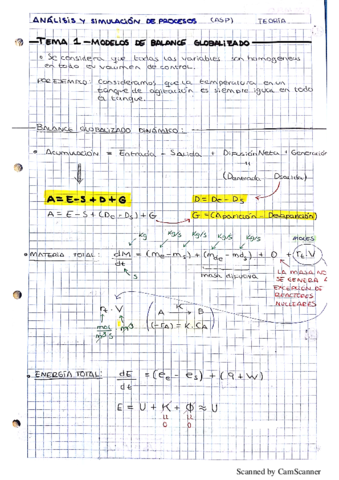 ANÁLISIS Y SIMULACIÓN DE PROCESOS (ASP) TEORÍA
TEMA 1 - MODELOS DE BALANCE GLOBALIZADO
• Se considera que todas las variables son homogéneas
en todo su volumen de control.
POR EJEMPLO: Consideramos que la temperatura en un
tanque de agitación es siempre igual en todo
el tanque.
BALANCE GLOBALIZADO DINÁMICO:
• Acumulación = Entrada - Salida + Difusión Neta + Generación
(Dentrada - Dsalida)
A = E-S + D + G
D = De - Ds
A = E-S + (De - Ds) + G
G = (Aparición - Desaparición)
kg kg/s kg/s kg/s kg/s moles
• MATERIA TOTAL: dM/dt = (me - ms) + (mde - mds) + 0 + (rt·V)
s
masa difusiva
LA MASA NO
SE GENERA
EXCEPCIÓN DE
REACTORES
NUCLEARES
rt · V
mol/m³s m³
(A K→ B
(-rA) = K·CA)
• ENERGÍA TOTAL: dE/dt = (ee - es) + (q + W)
E = U + K + Φ ≈ U
0 0
Scanned by CamScanner